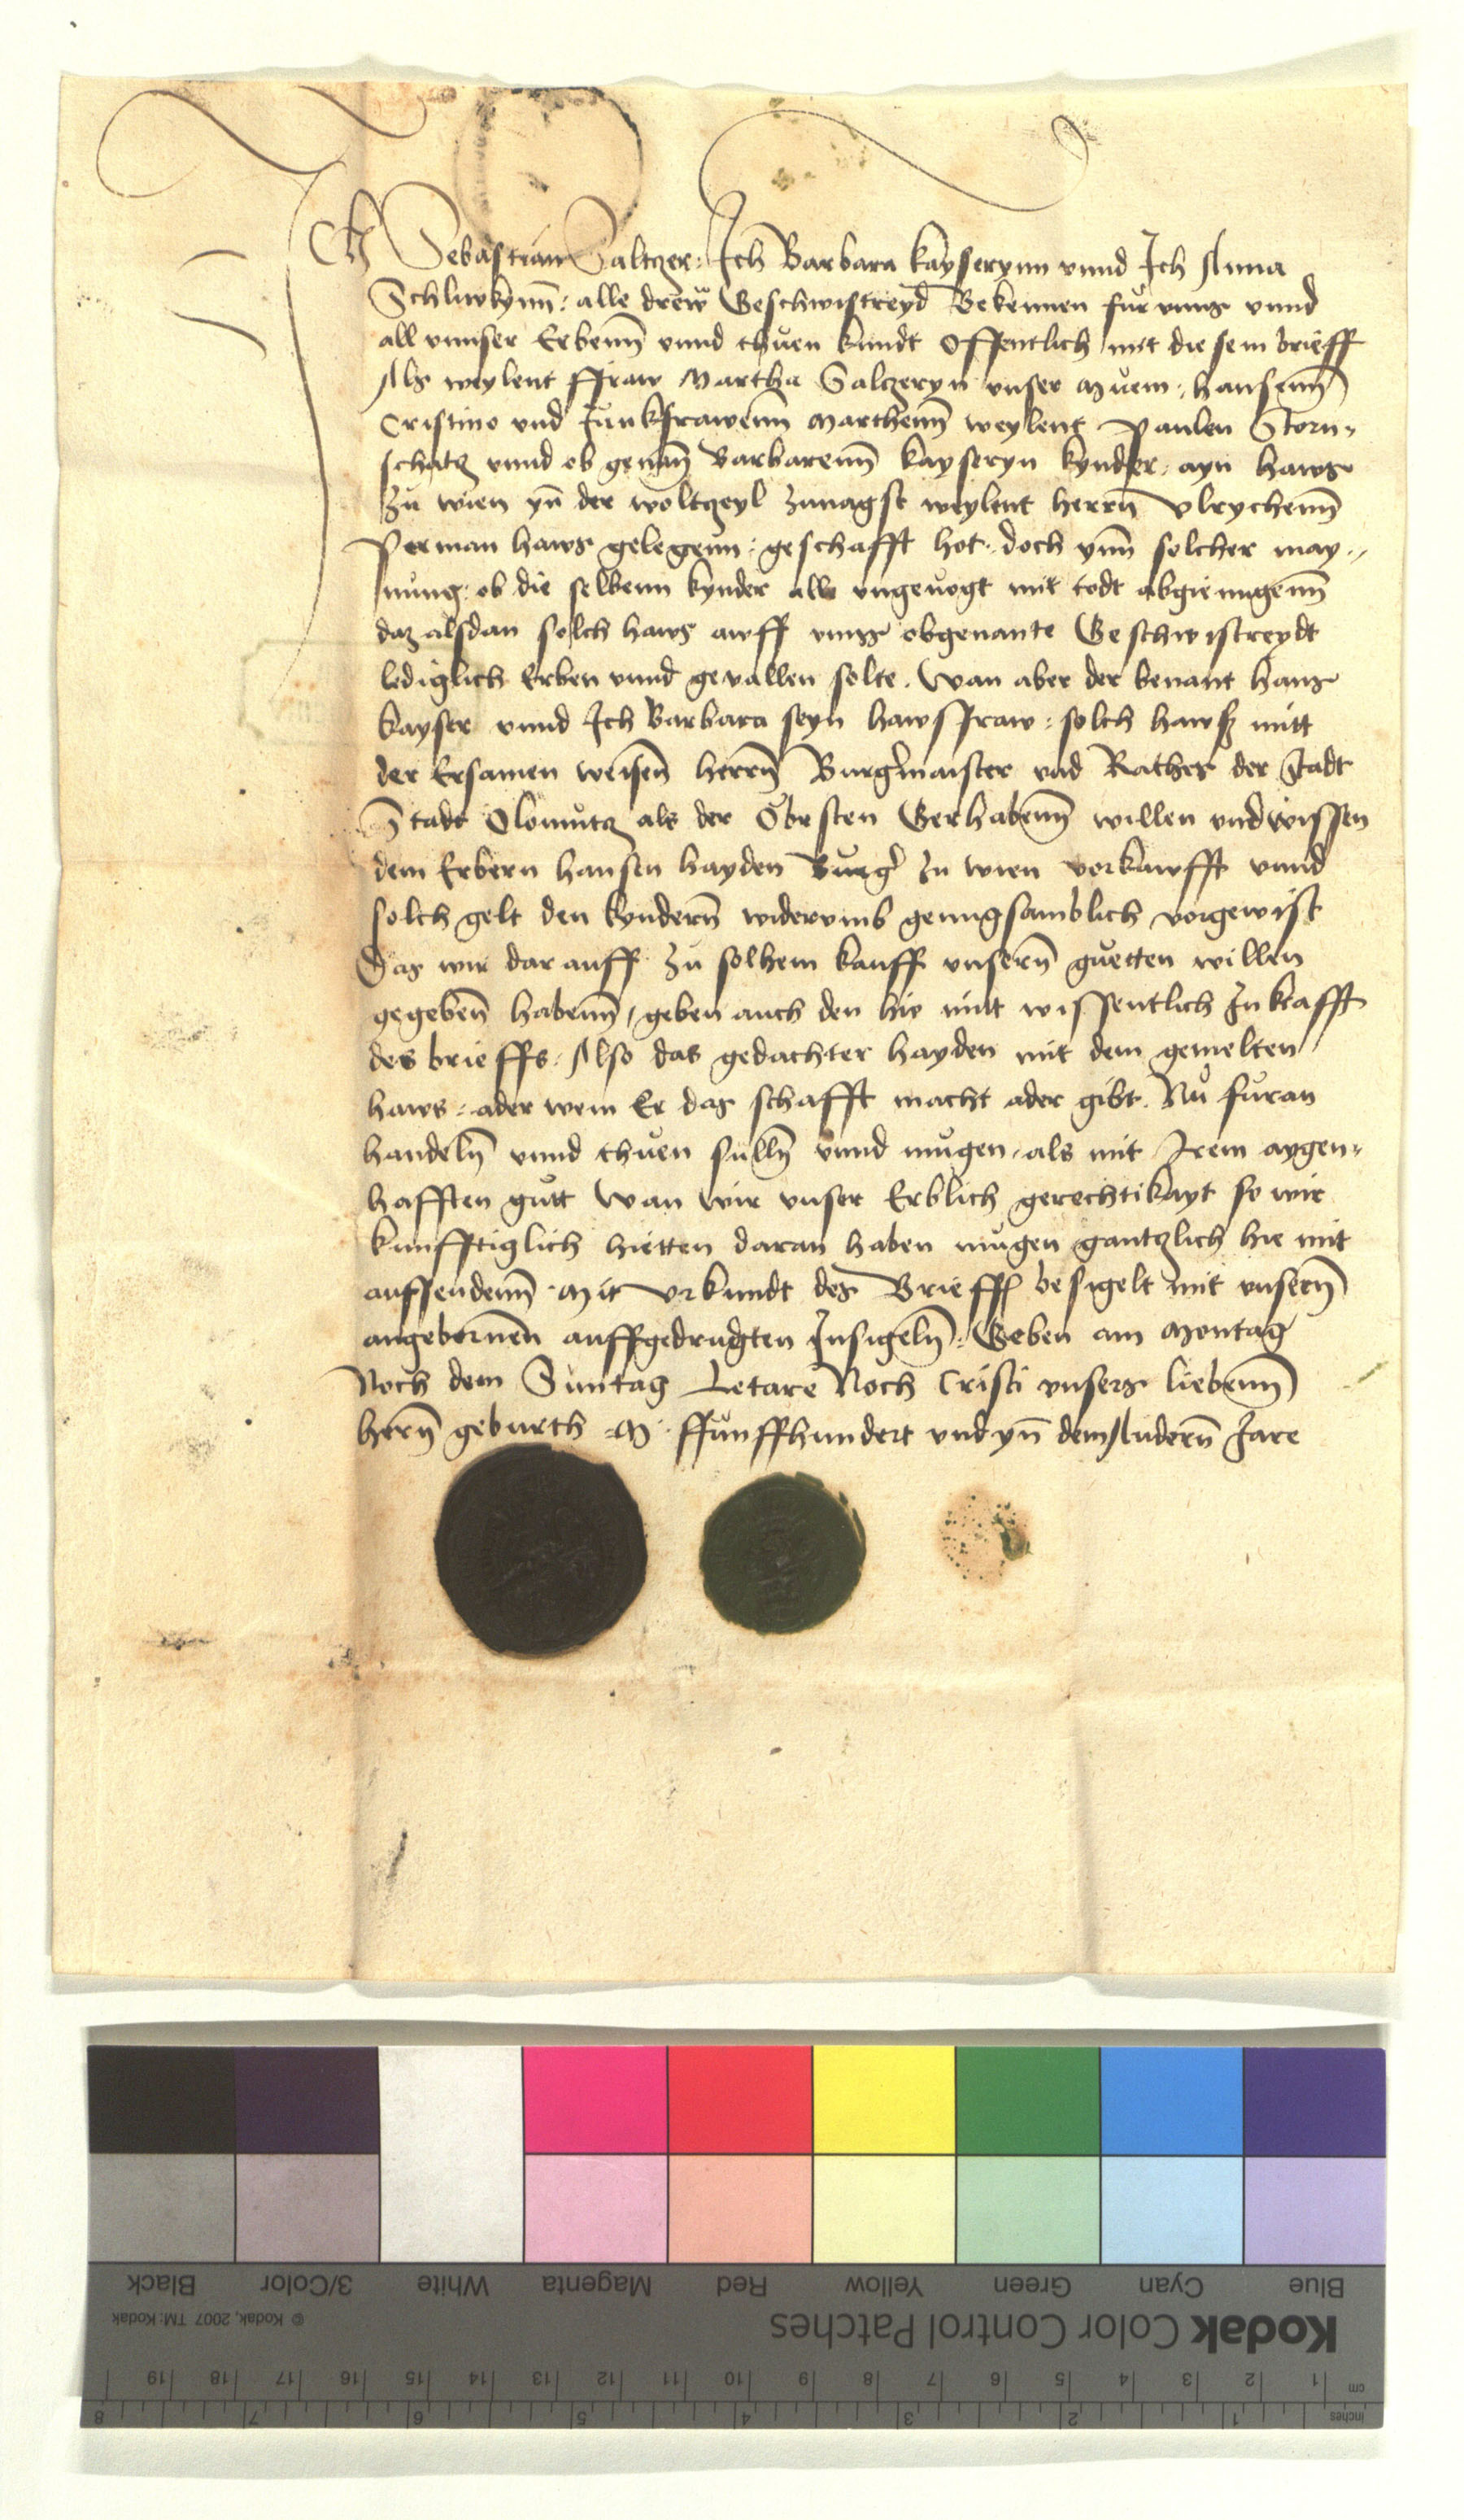 Ich Sebastian Saltzer: Ich Barbara kayserynn vnnd Ich Anna
Schlickynn: alle drew Geschwistreyd Bekennen fur vnns vnnd
all vnnser Erbenn vnnd thuen kundt Offentlich mit diesem brieff
Als weylent ffraw Martha Saltzeryn vnser Muem, hansenn
Cristino vnd Junkfrawenn Marthenn weylent Paulen Storn-
schatz vnnd ob genan Barbarenn kayseryn kynder, ayn haws
zu wien yn der woltzeyl zunagst weylent herrn Vlrychenn
Perman haws gelegenn: geschafft hot. doch ynn solcher may-
nung, ob die selbenn kynder alle vngeuogt mit todt abgienngenn
daz alsdan solch haws awff vnns obgenante Geschwistreydt
lediglich Erben vnnd geuallen solte. Wan aber der benant hans
kayser vnnd Ich Barbara seyn hawsfraw: solch hawß mitt
der Ersamen weisen herrn Burgermaister vnd Rathes der Stadt
Stadt Olomutz als der Obrsten Gerhabenn willen vnd wissen
dem Erbern hansen hayden burger zu wien vorkawfft vnnd
solch gelt den kyndern widerumb genugsamblich vorgewist
Das wir dar auff zu solhem kauff vnsern guetten willen
gegeben habenn, geben auch den hie mitt wissentlich In krafft
des brieffs. Also das gedachter hayden mit dem gemelten
haws: ader wem Er das schafft macht ader gibt. Nu furan
handeln vnnd thuen sulln vnnd mugen, als mit Irem aygen-
hafften gutt Wan wir vnser Erblich gerechtikayt so wir
kunfftiglich hietten daran haben mugen gantzlich hie mit
auffsendenn. Mit Vrkundt des Brieffs besigelt mit vnsern
angebornen auffgedrugten Insigeln. Geben am Montag
Noch dem Suntag Letare Noch Cristi vnsers liebenn
hern geburth M. ffunffhundert vnd yn dem Andern Jare
Blue Cyan Green Yellow Red Magenta White 3/Color Black
Kodak Color Control Patches
© Kodak, 2007 TM: Kodak
cm 1 2 3 4 5 6 7 8 9 10 11 12 13 14 15 16 17 18 19
inches 1 2 3 4 5 6 7 8